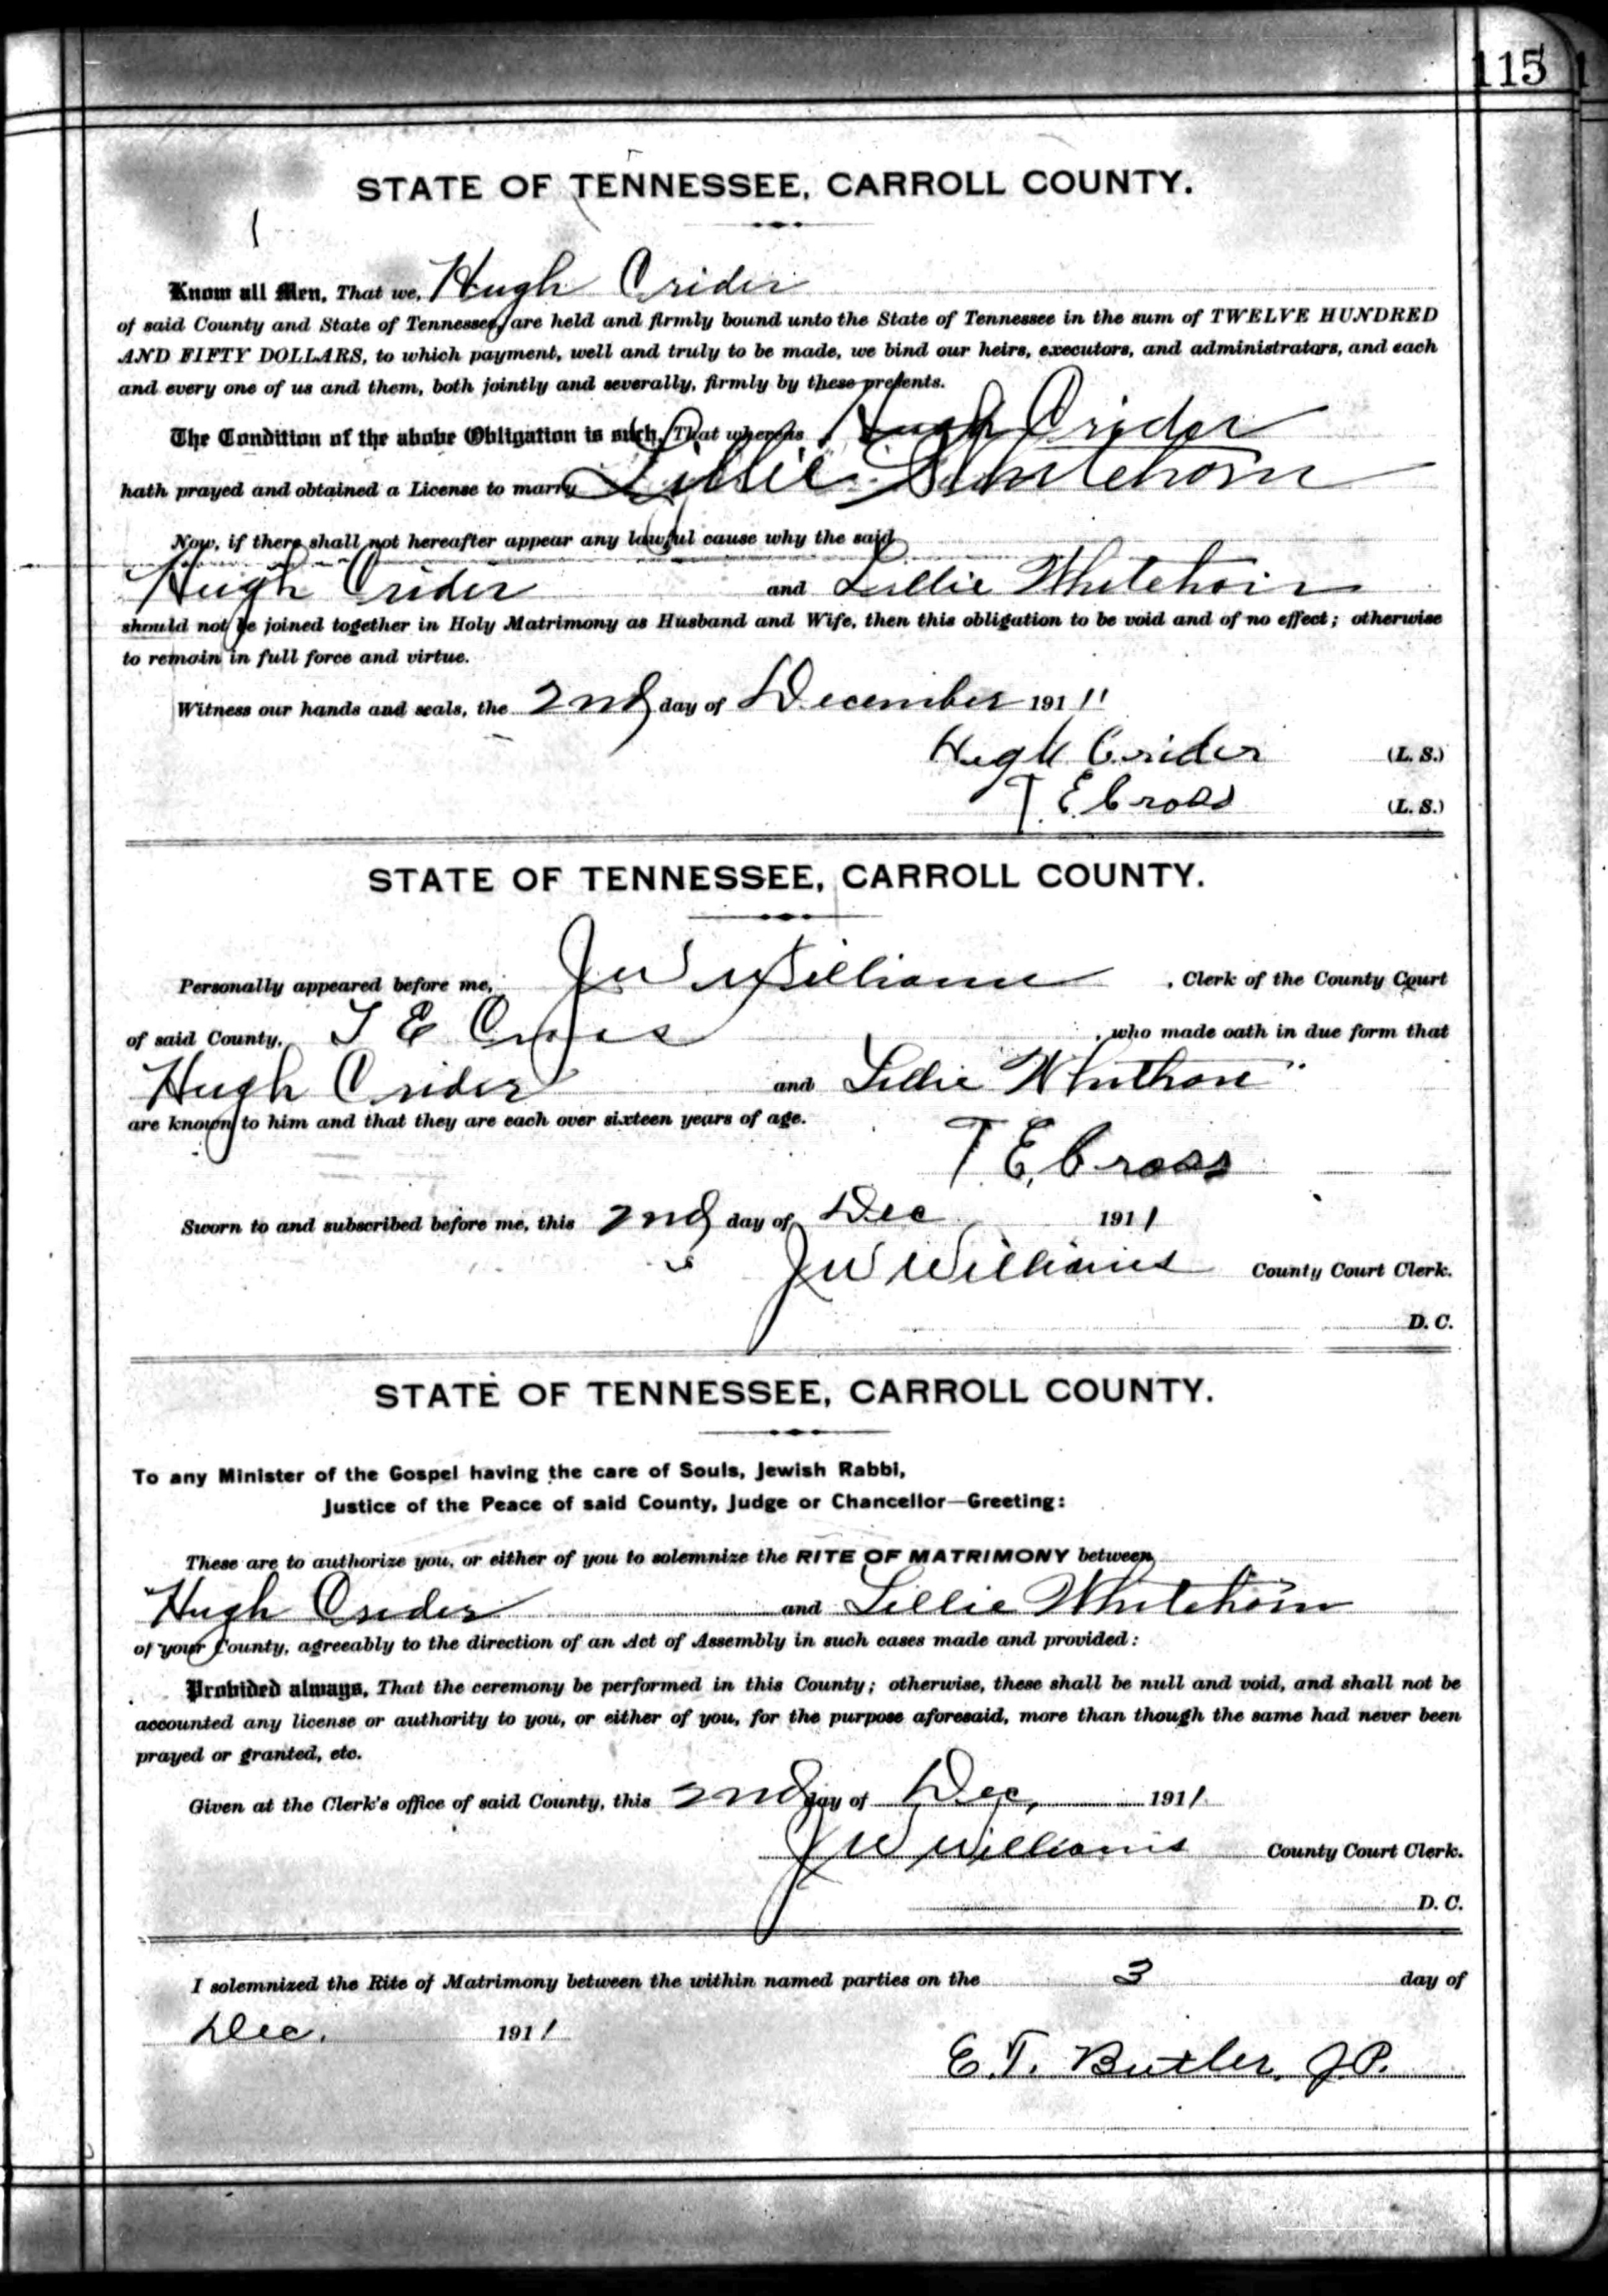 115
STATE OF TENNESSEE, CARROLL COUNTY.
Know all Men, That we, Hugh Crider
of said County and State of Tennessee, are held and firmly bound unto the State of Tennessee in the sum of TWELVE HUNDRED
AND FIFTY DOLLARS, to which payment, well and truly to be made, we bind our heirs, executors, and administrators, and each
and every one of us and them, both jointly and severally, firmly by these presents.
The Condition of the above Obligation is such, That whereas Hugh Crider
hath prayed and obtained a License to marry Lillie Whitehorn
Now, if there shall not hereafter appear any lawful cause why the said
Hugh Crider and Lillie Whitehorn
should not be joined together in Holy Matrimony as Husband and Wife, then this obligation to be void and of no effect; otherwise
to remain in full force and virtue.
Witness our hands and seals, the 2nd day of December 191 11
Hugh Crider (L. S.)
T. E. Cross (L. S.)
STATE OF TENNESSEE, CARROLL COUNTY.
Personally appeared before me, J W Williams, Clerk of the County Court
of said County, T E Cross, who made oath in due form that
Hugh Crider and Lillie Whithorn
are known to him and that they are each over sixteen years of age.
T. E. Cross
Sworn to and subscribed before me, this 2nd day of Dec 1911
J W Williams County Court Clerk.
D. C.
STATE OF TENNESSEE, CARROLL COUNTY.
To any Minister of the Gospel having the care of Souls, Jewish Rabbi,
Justice of the Peace of said County, Judge or Chancellor—Greeting:
These are to authorize you, or either of you to solemnize the RITE OF MATRIMONY between
Hugh Crider and Lillie Whitehorn
of your County, agreeably to the direction of an Act of Assembly in such cases made and provided:
Provided always, That the ceremony be performed in this County; otherwise, these shall be null and void, and shall not be
accounted any license or authority to you, or either of you, for the purpose aforesaid, more than though the same had never been
prayed or granted, etc.
Given at the Clerk's office of said County, this 2nd day of Dec, 1911
J W Williams County Court Clerk.
D. C.
I solemnized the Rite of Matrimony between the within named parties on the 3 day of
Dec. 1911
E. T. Butler, J.P.